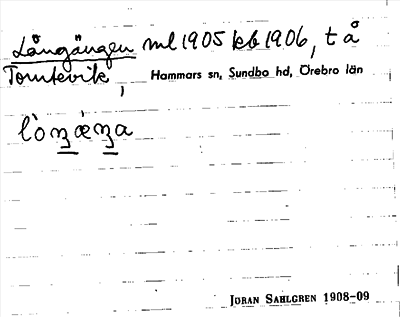 Långängen ml 1905 kb 1906, t å
Tomtevik, Hammars sn, Sundbo hd, Örebro län
lòŋæ̀ŋa
JORAN SAHLGREN 1908-09